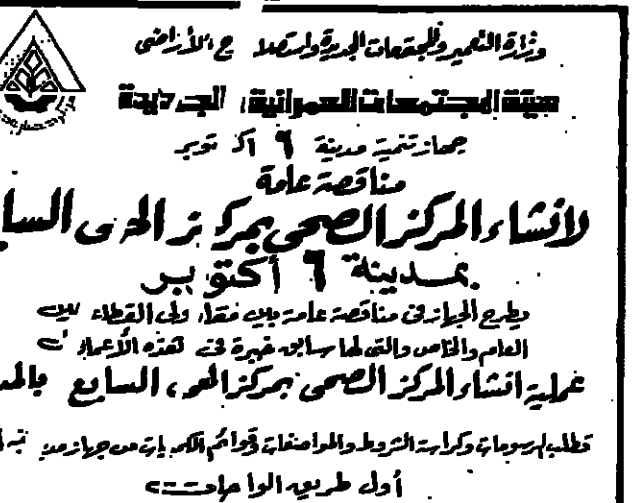 وزارة التعمير والمجتمعات الجديدة واستصلا ح الأراضى
هيئة المجتمعات العمرانية الجديدة
جهاز تنمية مدينة ٦ أكتوبر
مناقصة عامة
لانشاء المركز الصحى بمركز الحى السا
بمدينة ٦ أكتوبر
يطرح الجهاز فى مناقصة عامة بين
العام والخاص والتى لها سابق خبرة فى هذه الأعمال
عملية انشاء المركز الصحى بمركز الحى السابع بالمد
وتطلب الرسومات وكراسة الشروط والمواصفات وقوائم الكميات من جهاز
أول طريق الواحات